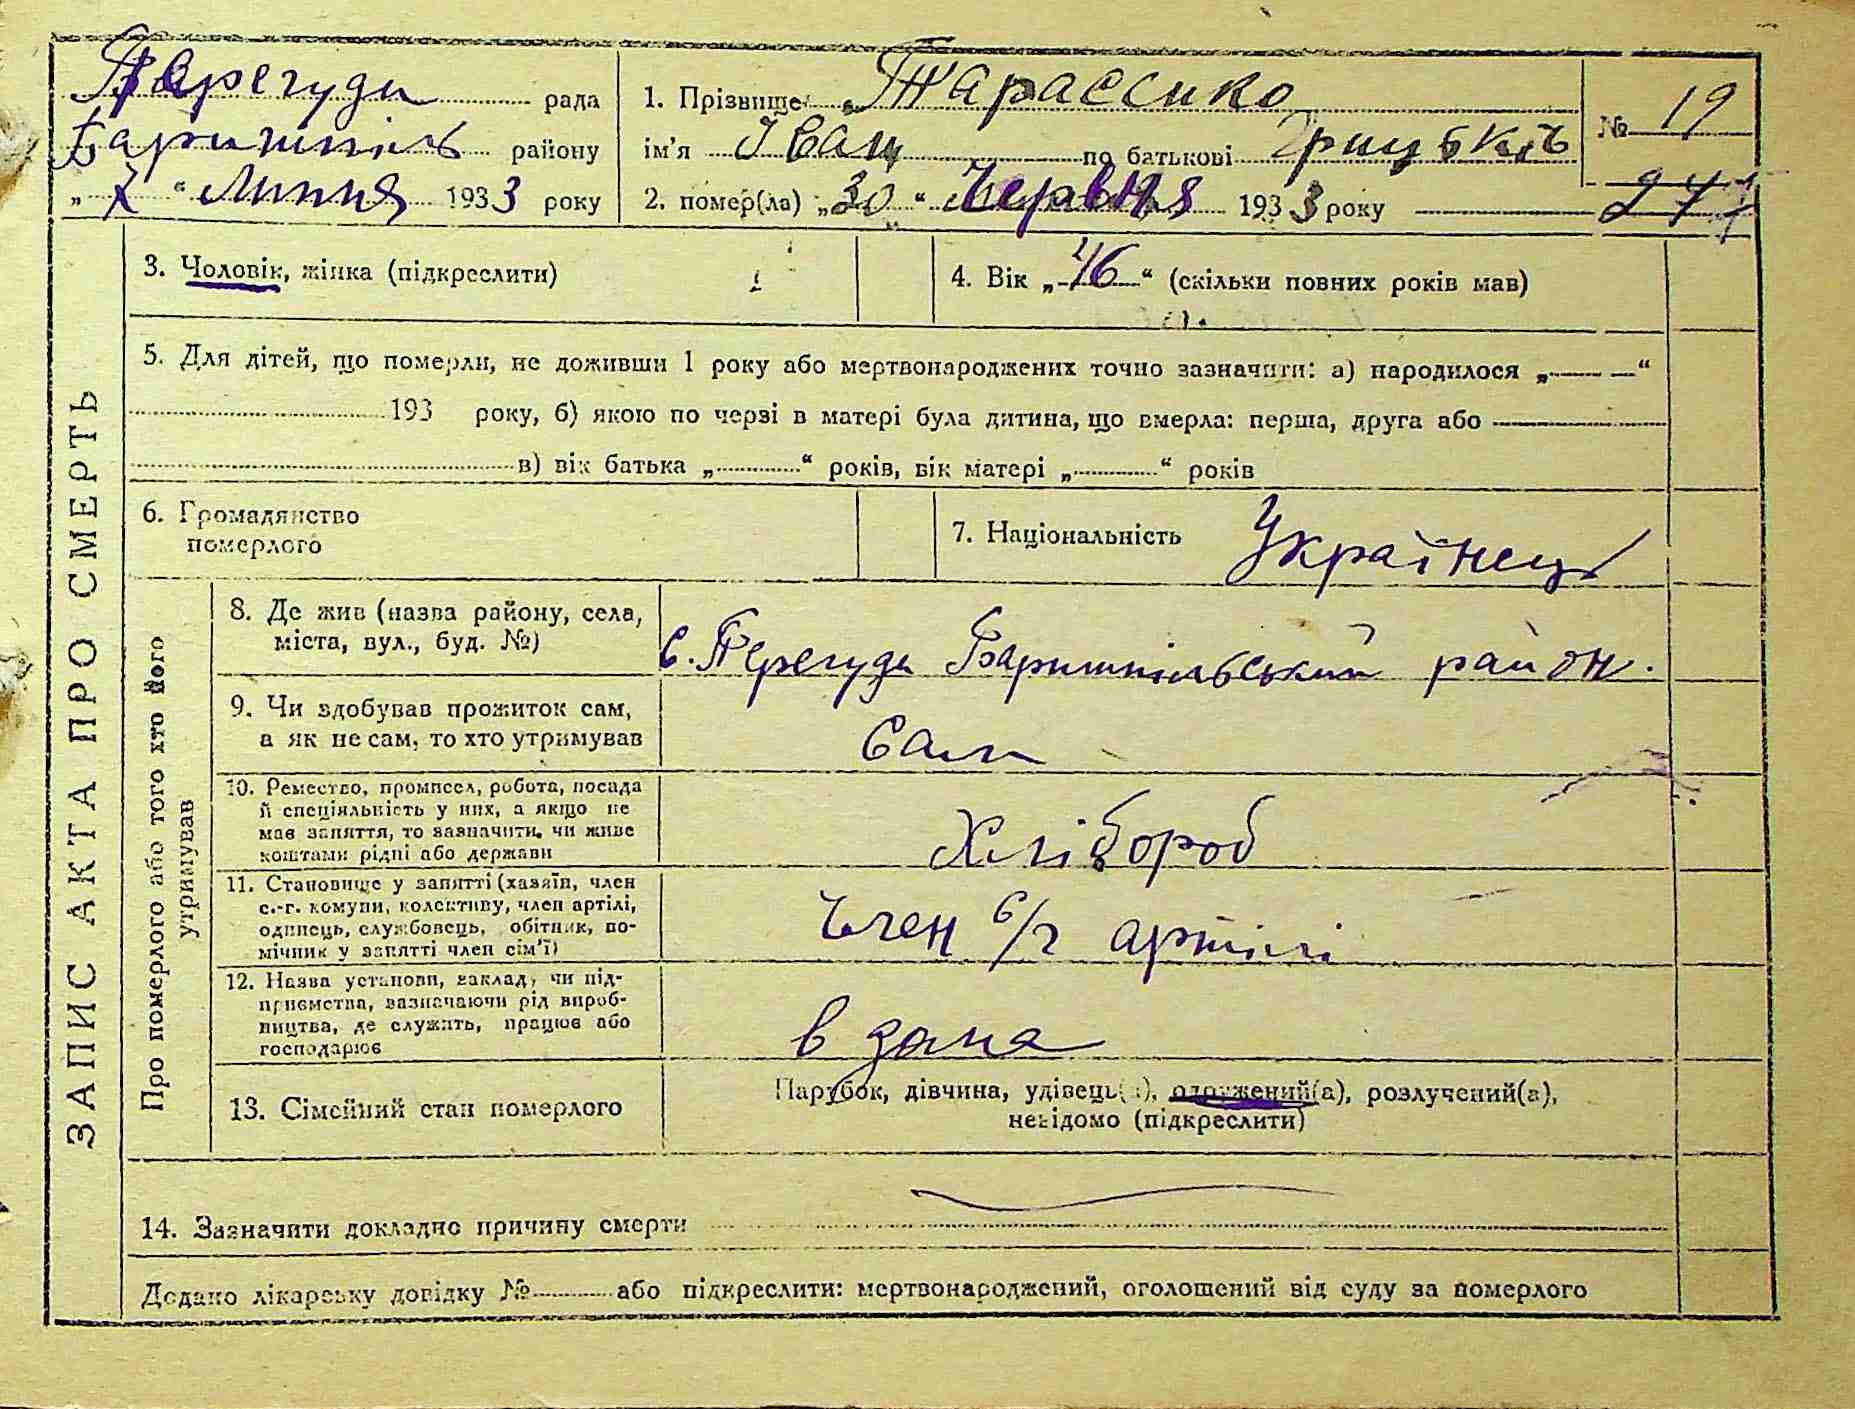 Перегуди рада
Баришпіль району
„ 7 “ Липня 1933 року
1. Прізвище Тарасенко
ім'я Іван по батькові Грицьків
2. помер(ла) „30“ Червня 1933 року
№ 19
ЗАПИС АКТА ПРО СМЕРТЬ
3. Чоловік, жінка (підкреслити)
4. Вік „46“ (скільки повних років мав)
5. Для дітей, що померли, не доживши 1 року або мертвонароджених точно зазначити: а) народилося „ “
193 року, б) якою по черзі в матері була дитина, що вмерла: перша, друга або
в) вік батька „ “ років, вік матері „ “ років
6. Громадянство
померлого
7. Національність Українець
Про померлого або того хто його
утримував
8. Де жив (назва району, села,
міста, вул., буд. №)
с. Перегуди Баришпільський район.
9. Чи здобував прожиток сам,
а як не сам, то хто утримував
Сам
10. Ремество, промисел, робота, посада
й спеціяльність у них, а якщо не
мав заняття, то зазначити, чи живе
коштами рідні або держави
Хлібороб
11. Становище у занятті (хазяїн, член
с.-г. комуни, колективу, член артілі,
одинець, службовець, обітник, по-
мічник у занятті член сім'ї)
Член с/г артілі
12. Назва установи, заклад, чи під-
приємства, зазначаючи рід вироб-
ництва, де служить, працює або
господарює
в дома
13. Сімейний стан померлого
Парубок, дівчина, удівець(а), одружений(а), розлучений(а),
невідомо (підкреслити)
14. Зазначити докладно причину смерти
Додано лікарську довідку № або підкреслити: мертвонароджений, оголошений від суду за померлого